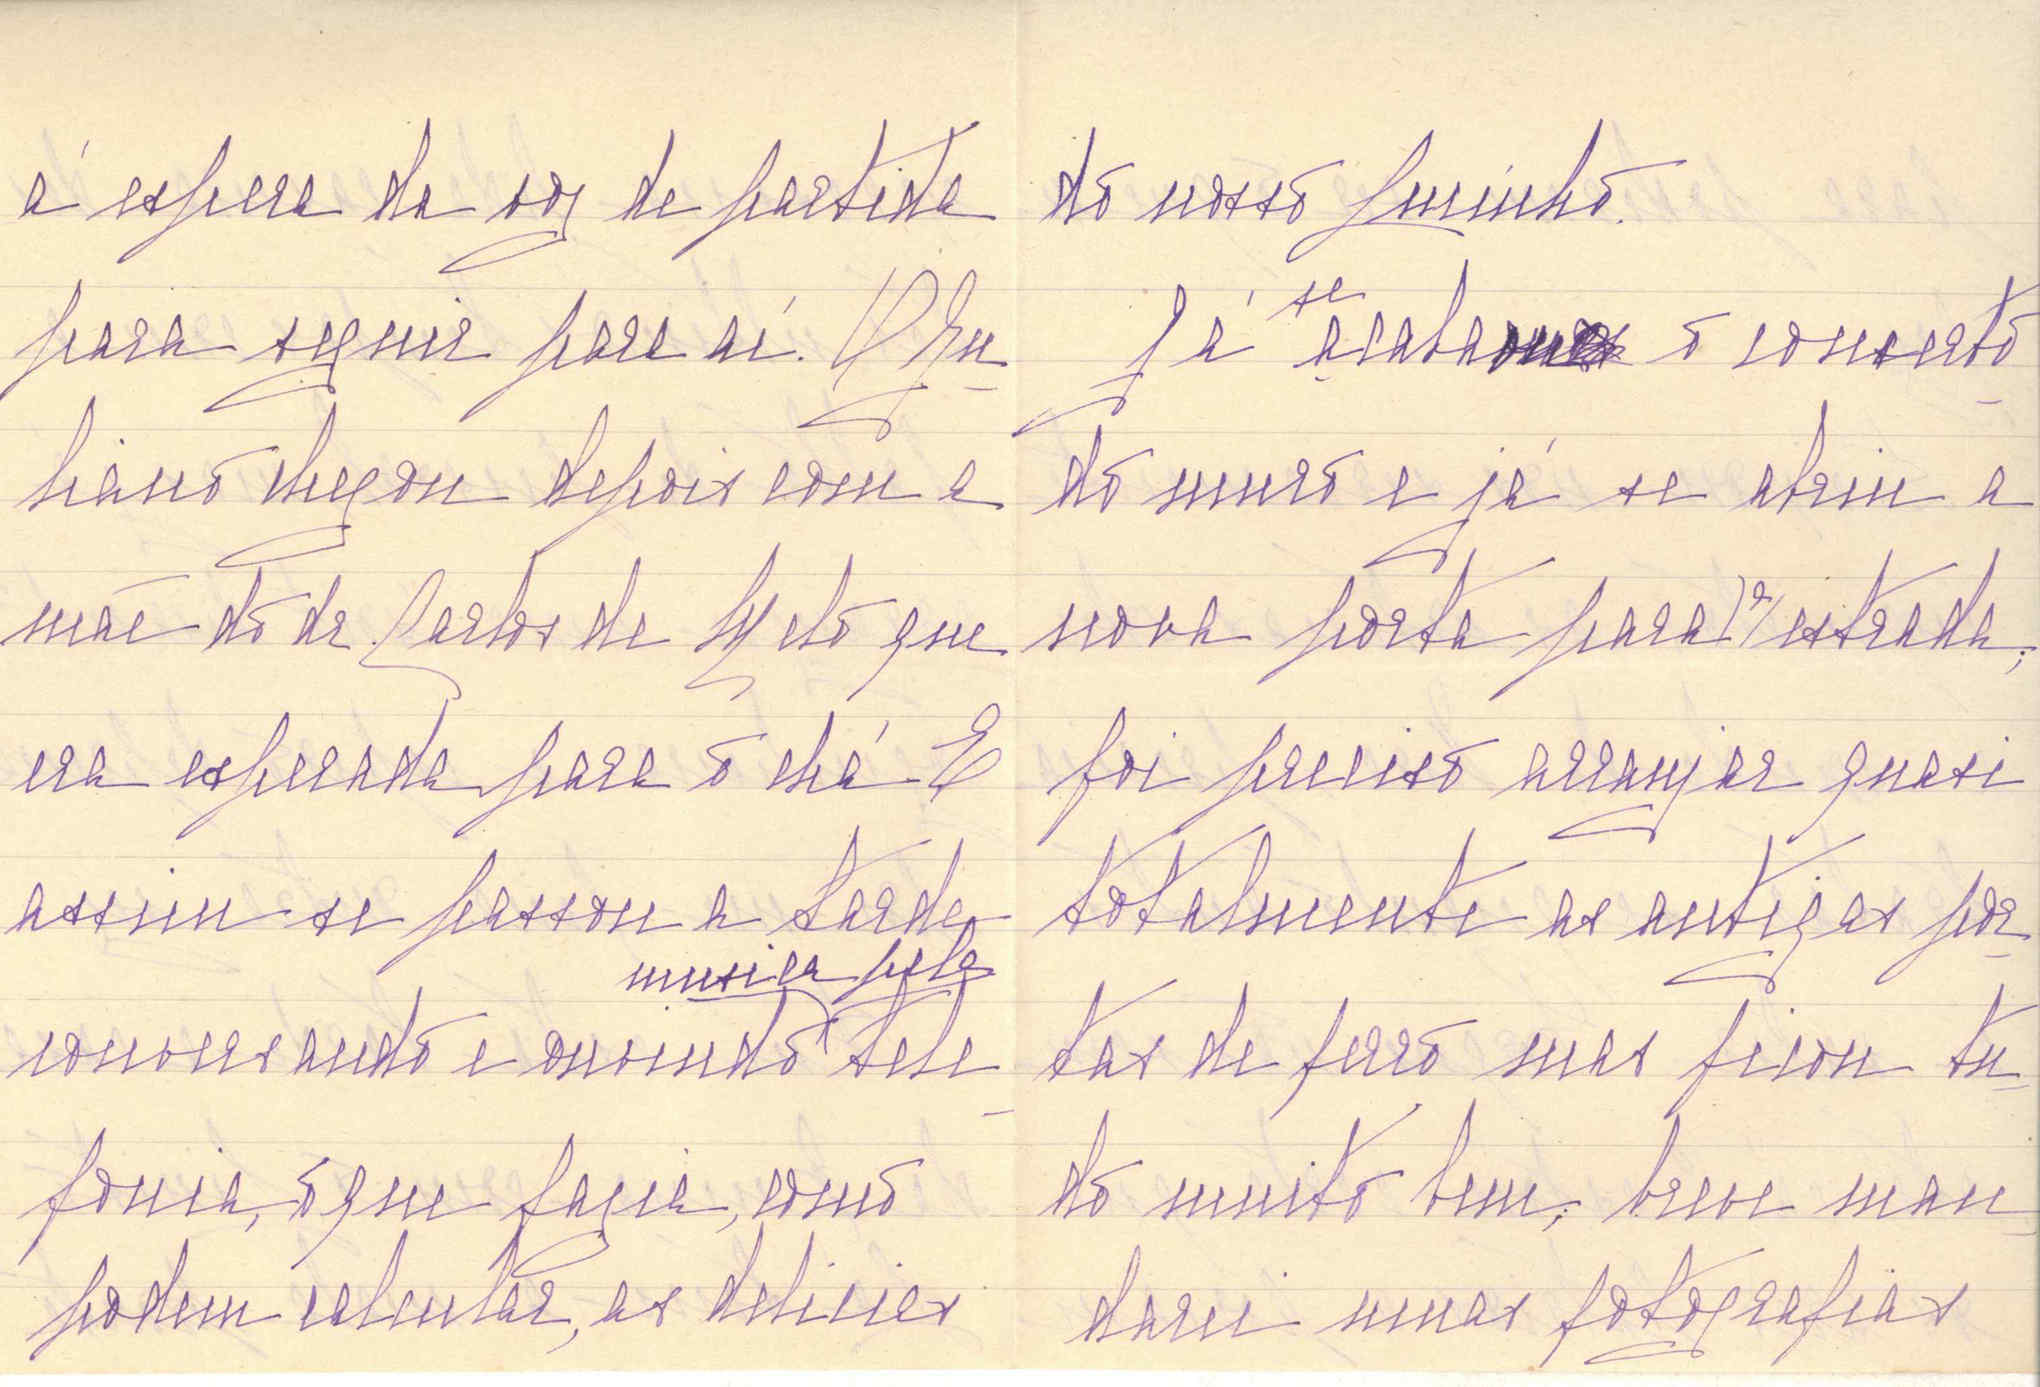 á espera da voz de partida
para seguir para aí. O Zu-
biano chegou depois com a
mãe do dr. Carlos de Melo que
era esperada para o chá. E
assim se passou a tarde
conversando e ouvindo musica pela tele-
fonia, o que fazia, como
podem calcular, as delicias
do nosso
Já se acabou o concerto
do muro e já se abriu a
nova porta para a estrada;
foi preciso arranjar quasi
totalmente as antigas por-
tas de ferro mas ficou tu-
do muito bem; breve man-
darei umas fotografias